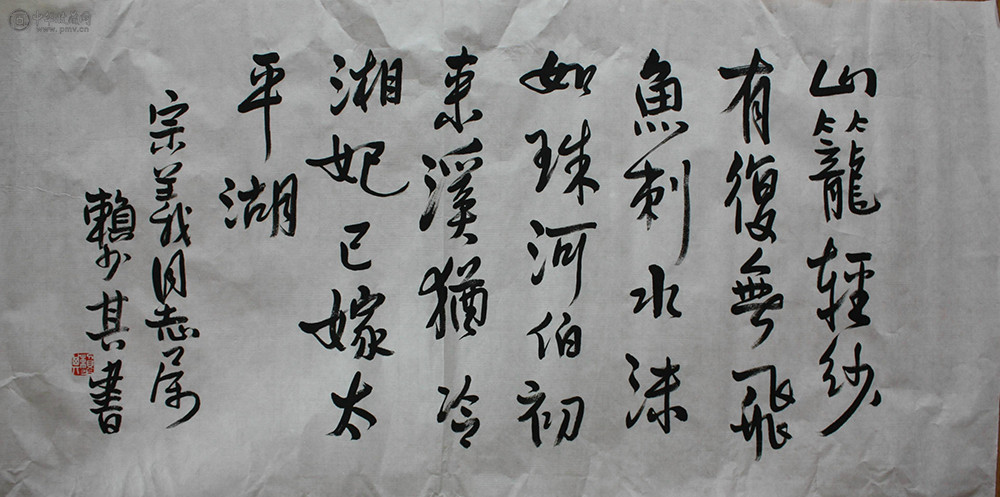 山籠輕紗
有復無飛
魚刺水沫
如珠河伯初
来溪猶冷
湘妃已嫁太
平湖
宗義同志属
賴少其書
www.pmv.cn